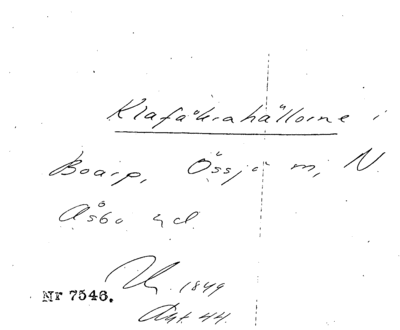 Klafåkrahällorne i
Boarp, Össjö m, N.
Åsbo hd.
1849
Nr 7546.
Akt. 44.